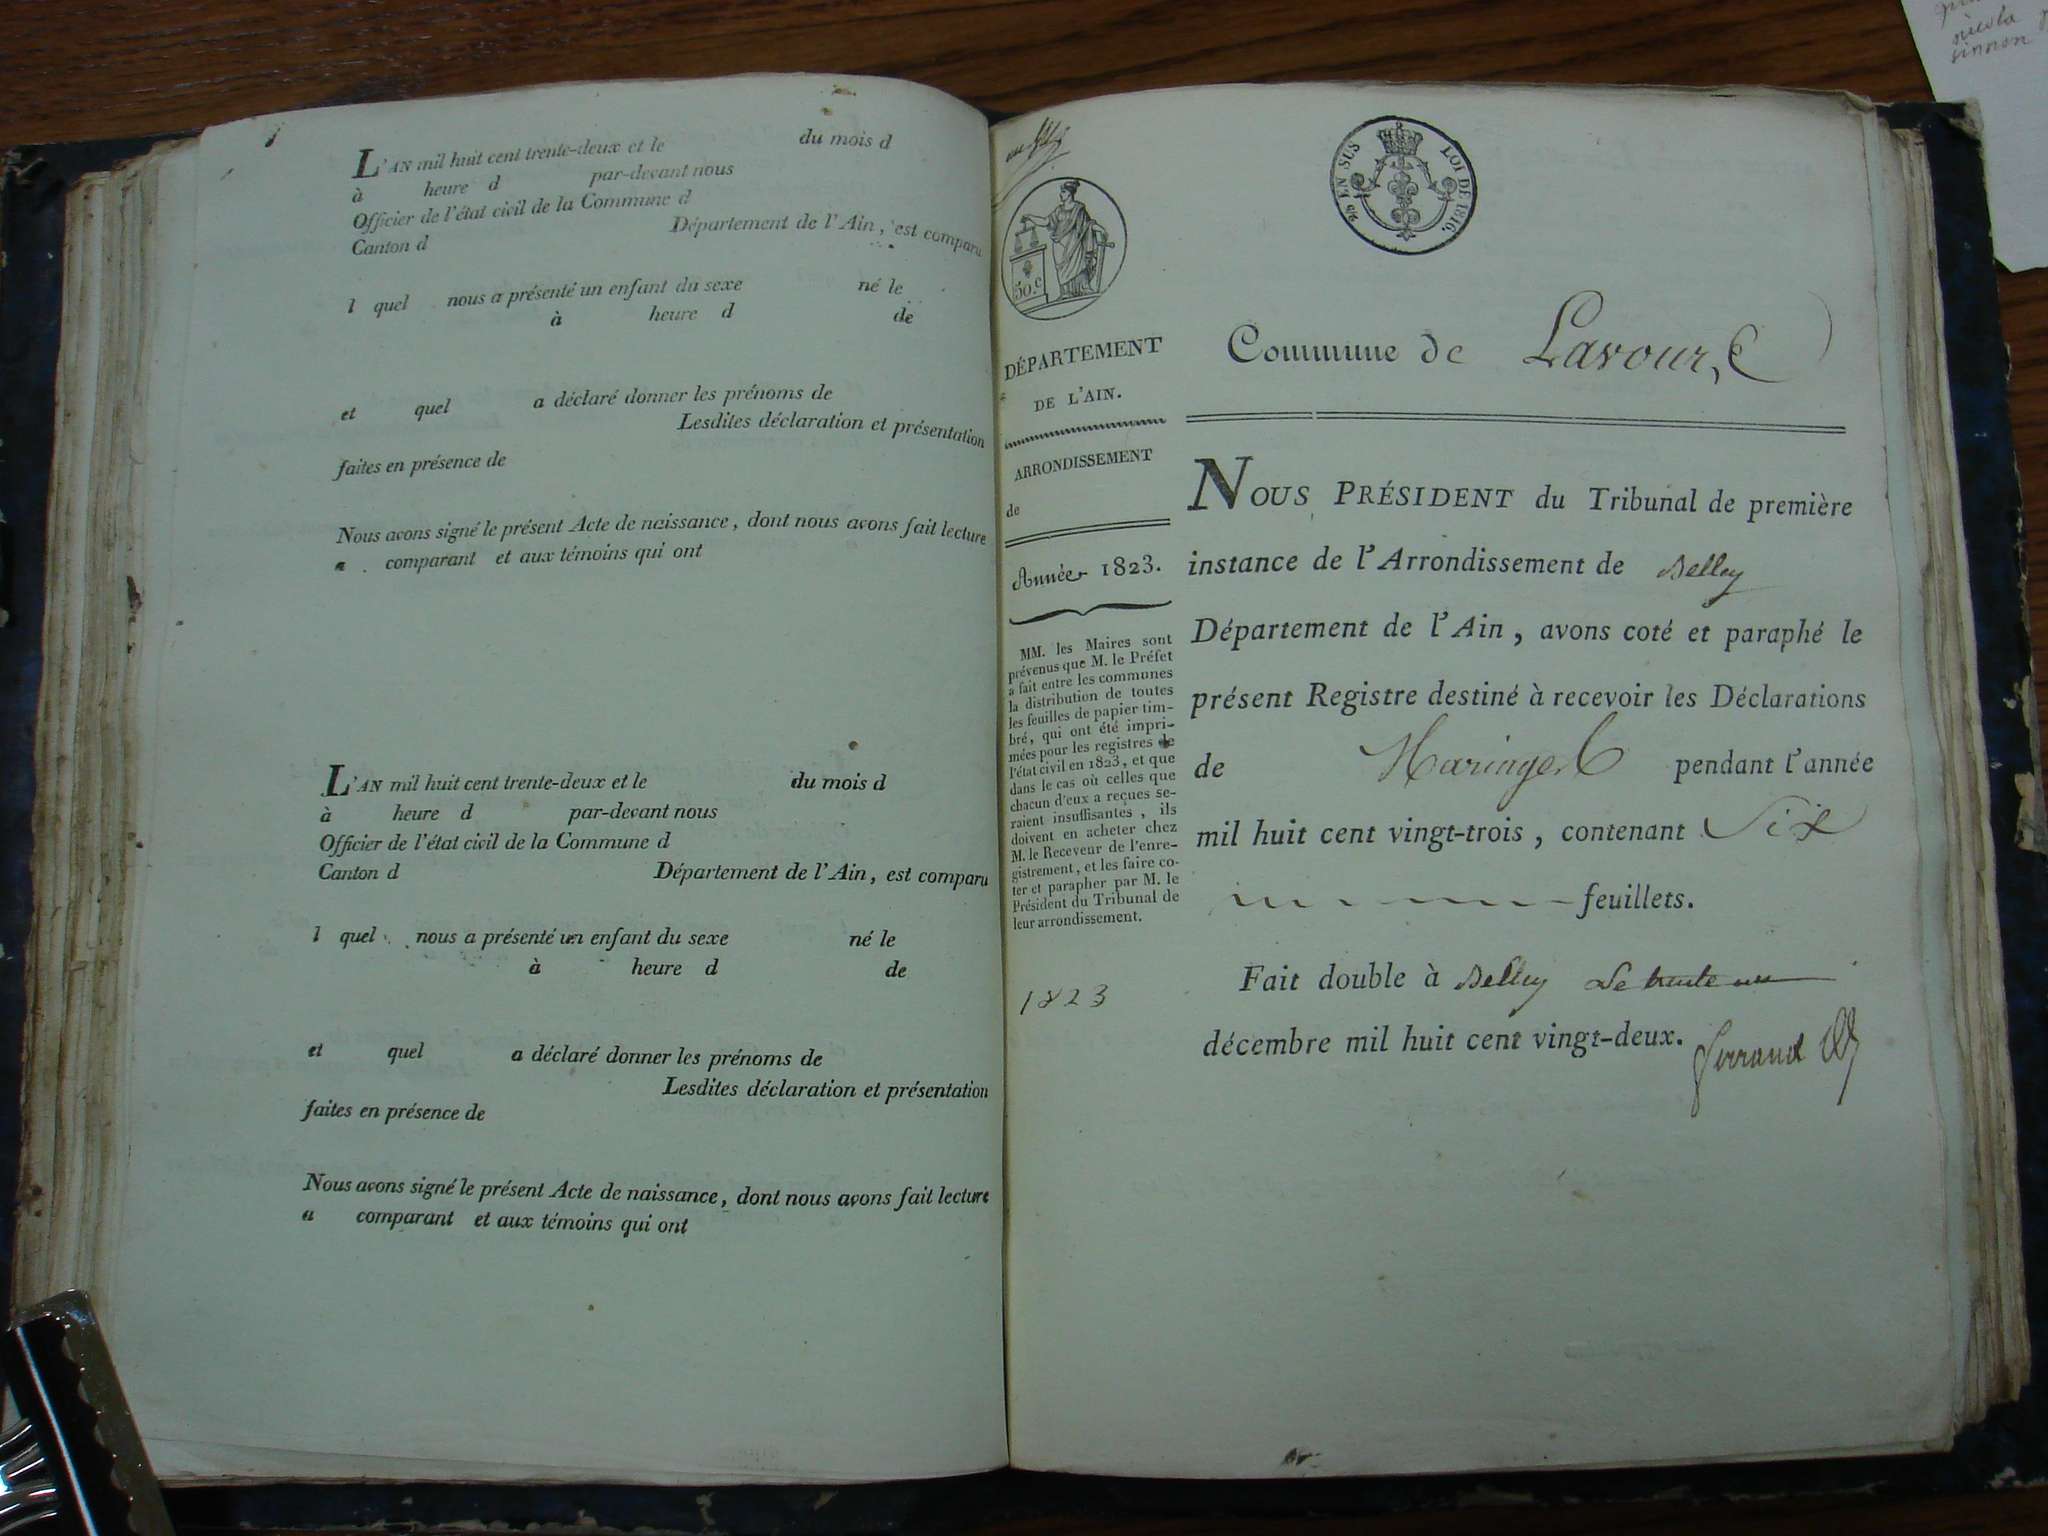 L'AN mil huit cent trente-deux et le du mois d
à heure d par-devant nous
Officier de l'état civil de la Commune d
Canton d Département de l'Ain, est comparu
l quel nous a présenté un enfant du sexe né le
à heure d de
et quel a déclaré donner les prénoms de
Lesdites déclaration et présentation
faites en présence de
Nous avons signé le présent Acte de naissance, dont nous avons fait lecture
a comparant et aux témoins qui ont
L'AN mil huit cent trente-deux et le du mois d
à heure d par-devant nous
Officier de l'état civil de la Commune d
Canton d Département de l'Ain, est comparu
l quel nous a présenté un enfant du sexe né le
à heure d de
et quel a déclaré donner les prénoms de
Lesdites déclaration et présentation
faites en présence de
Nous avons signé le présent Acte de naissance, dont nous avons fait lecture
a comparant et aux témoins qui ont
EN SUS LOI DE 1816.
50.c
DÉPARTEMENT
DE L'AIN.
ARRONDISSEMENT
de
Année 1823.
MM. les Maires sont
prévenus que M. le Préfet
a fait entre les communes
la distribution de toutes
les feuilles de papier tim-
bré, qui ont été impri-
mées pour les registres de
l'état civil en 1823, et que
dans le cas où celles que
chacun d'eux a reçues se-
raient insuffisantes, ils
doivent en acheter chez
M. le Receveur de l'enre-
gistrement, et les faire co-
ter et parapher par M. le
Président du Tribunal de
leur arrondissement.
1823
Commune de Lavour,
NOUS PRÉSIDENT du Tribunal de première
instance de l'Arrondissement de Belley
Département de l'Ain, avons coté et paraphé le
présent Registre destiné à recevoir les Déclarations
de Mariages pendant l'année
mil huit cent vingt-trois, contenant Six
feuillets.
Fait double à Belley Le trente un
décembre mil huit cent vingt-deux.
nicola
simon